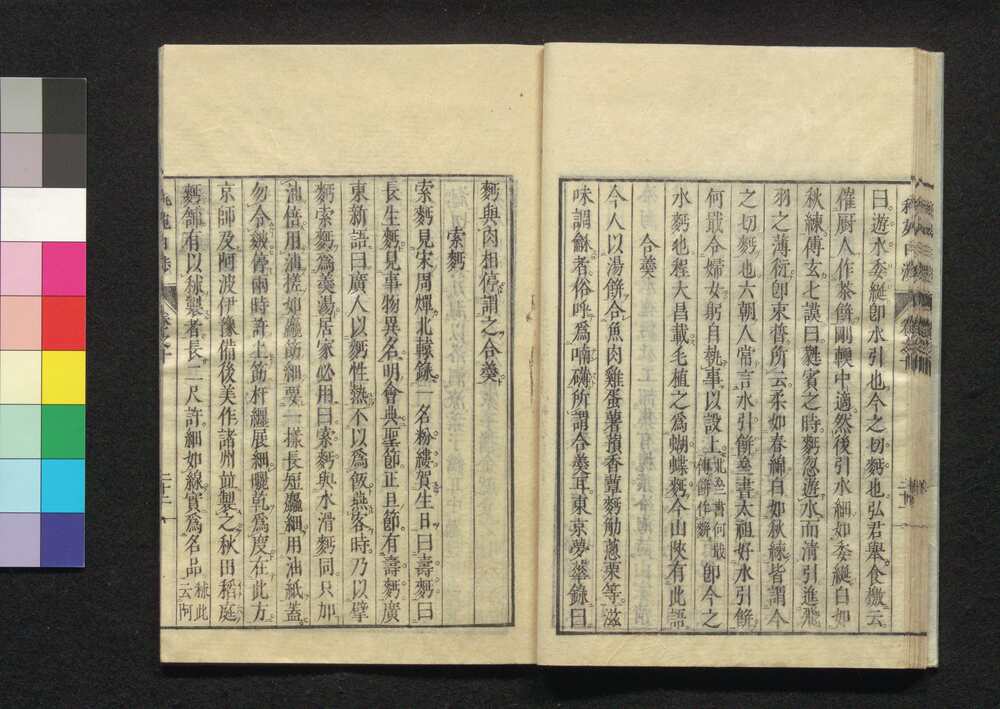 曰遊水委綖卽水引也今之切麪也弘君舉食檄云
催厨人作茶餠剛輭中適然後引水細如委綖白如
秋練傅玄七謨曰甦賓之時麪忽遊水而淸引進飛
羽之薄衍卽束晳所云柔如春綿白如秋練皆謂今
之切麪也六朝人常言水引餠齊書太祖好水引餠
何戢令婦女躬自執事以設上卽今之
水麪也程大昌載毛植之爲蝴蝶麪今山陜有此語
合羹
今人以湯餠合魚肉雞蛋薯蕷香蕈麪觔蔥栗等滋
味調龢者俗呼爲喃礴所謂合羹耳東京夢華錄曰
麪與肉相停謂之合羹
索麪
索麪見宋周煇北轅錄一名粉縷賀生日曰壽麪曰
長生麪見事物異名明會典聖節正旦節有壽麪廣
東新語曰廣人以麪性熱不以爲飯燕客時乃以擘
麪索麪爲羹湯居家必用曰索麪與水滑麪同只加
油倍用油搓如麤筯細要一樣長短麤細用油紙蓋
勿令皴停兩時許上筯杆纏展細曬乾爲度在此方
京師及阿波伊豫備後美作諸州並製之秋田稻庭
麪舖有以梜製者長二尺許細如線實爲名品